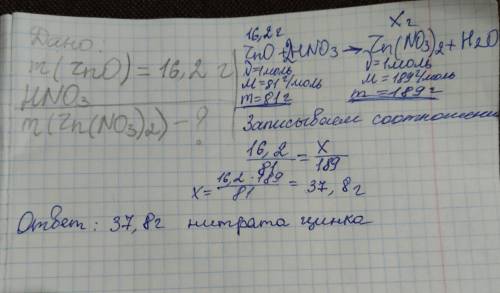 Дано:
m(ZnO) = 16,2 г
HNO3
m(Zn(NO3)2) - ?
16,2г Xг
ZnO + 2HNO3 → Zn(NO3)2 + H2O
ν=1моль ν=1моль
M=81г/моль M=189г/моль
m=81г m=189г
Записываем соотношени
16,2/81 = X/189
X = 16,2·189/81 = 37,8г
Ответ: 37,8г нитрата цинка